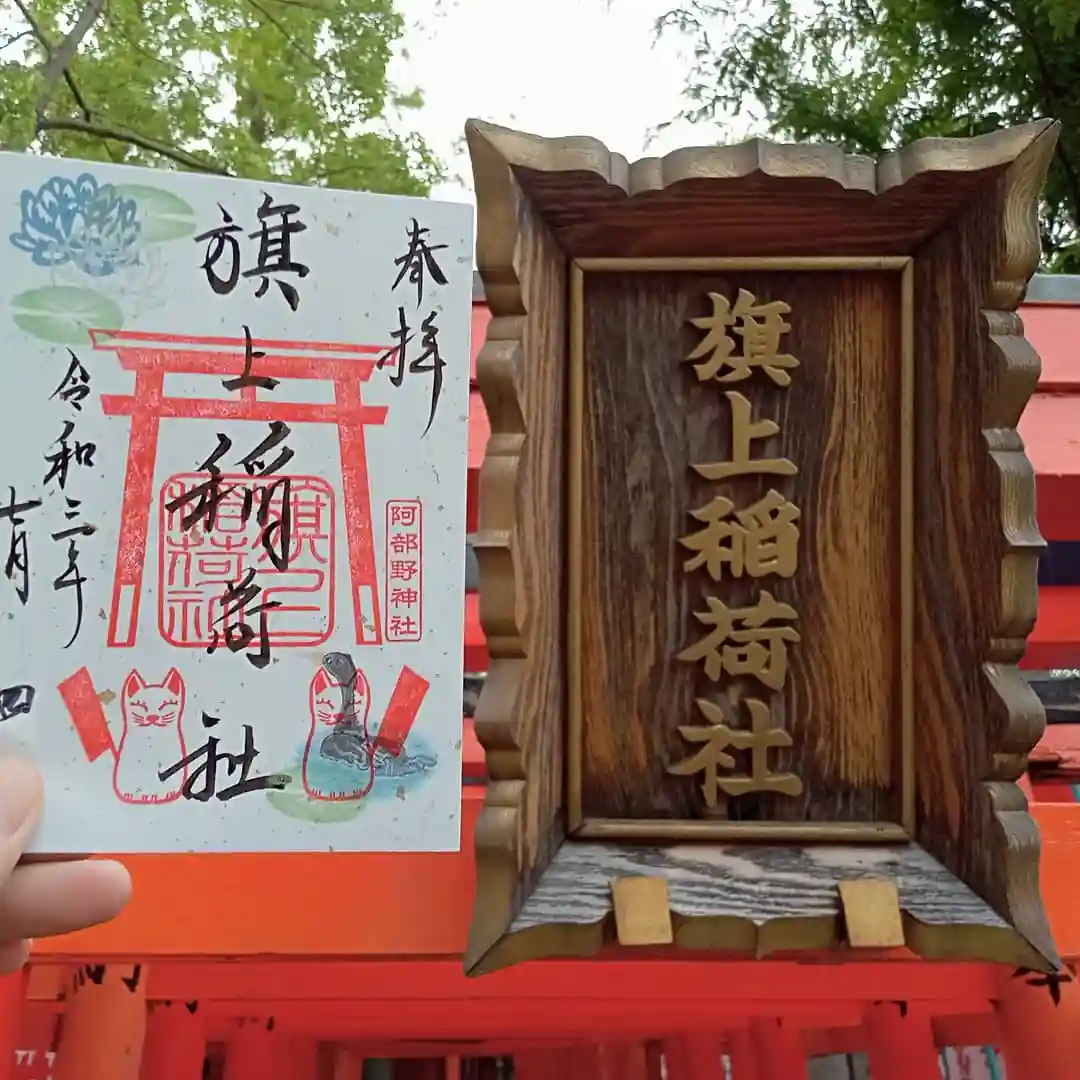 奉拝
旗上稲荷社
旗上
稲荷社
阿部野神社
令和三年
七月
四
旗上稲荷社